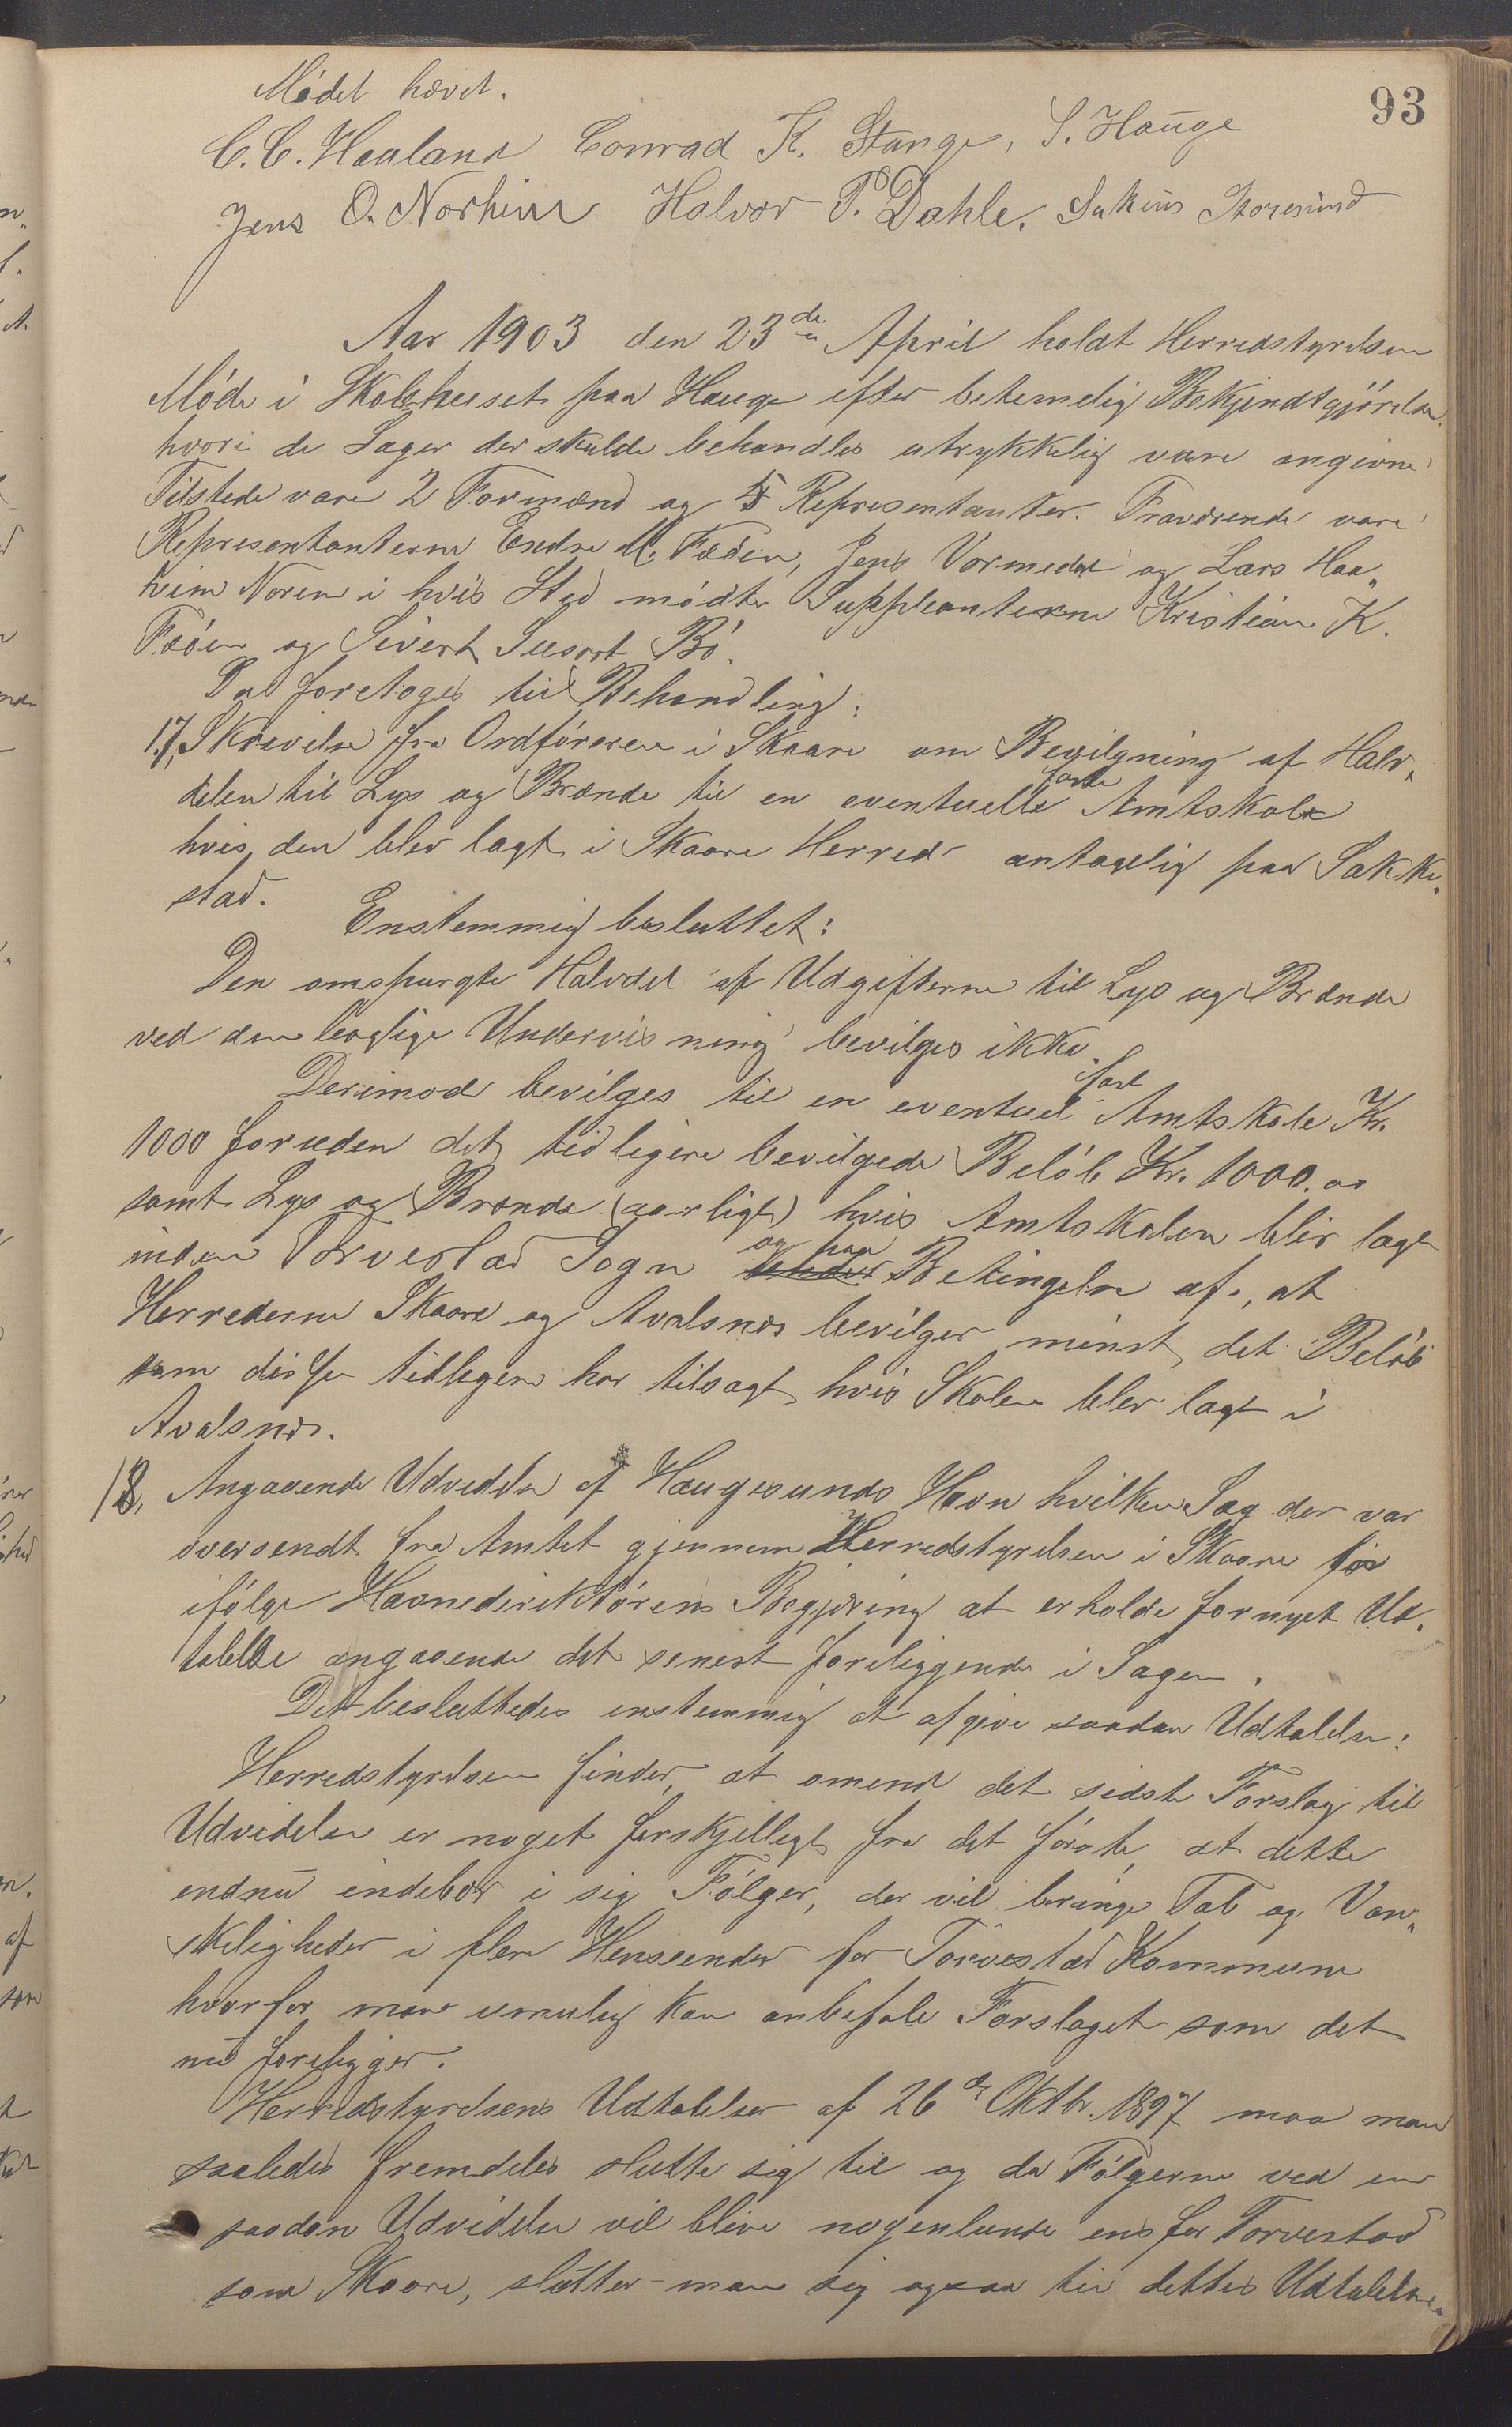 93
Mødet hævet.
C. C. Haaland Conrad K. Stange, S. Hauge
Jens O. Norheim Halvor P. Dahle. Sakeus Storesund
Aar 1903 den 23de April holdt Herredstyrelsen
Møde i Skolehuset paa Hauge efter betimelig Bekjendtgjørelse
hvori de Sager der skulde behandles utrykkelig vare angivne
Tilstede vare 2 Formænd og 5 Representanter. Fraværende vare
Representanterne Endre M. Fæøen, Jens Vormedal og Lars Haa„
heim Noren i hvis Sted mødte Suppleanterne Kristian K.
Fæøen og Sivert Bø.
Da foretoges til Behandling:
17, Skrivelse fra Ordføreren i Skaare om Bevilgning af Halv„
delen til Lys og Brænde til en eventuelle faste Amtskole
hvis den blev lagt i Skaare Herred antagelig paa Sakke„
stad.
Enstemmig besluttet:
Den omspurgte Halvdel af Udgifterne til Lys og Brænde
ved den boglige Undervisning bevilges ikke.
Derimod bevilges til en eventuel fast Amtskole Kr.
1000 foruden det tidligere bevilgede Beløb Kr. 1000.00
samt Lys og Brænde (aarligt) hvis Amtskolen blir lagt
inden Torvestad Sogn og paa Betingelse af, at
Herrederne Skaare og Avalsnes bevilger minst det Beløb
som disse tidligere har tilsagt hvis Skolen blev lagt i
Avalsnes.
18, Angaaende Udvidelse af Haugesunds Havn hvilken Sag der var
oversendt fra Amtet gjennem Herredstyrelsen i Skaare for
ifølge Havnedirektørens Begjæring at erholde fornyet Ud„
talelse angaaende det senest foreliggende i Sagen.
Det besluttedes enstemmig at afgive saadan Udtalelse:
Herredstyrelsen finder, at omend det sidste Forslag til
Udvidelse er noget forskjelligt fra det første, at dette
endnu indebær i sig Følger, der vil bringe Tab og Van„
skeligheder i flere Henseender for Torvestad Kommune
hvorfor man umulig kan anbefale Forslaget som det
nu foreligger.
Herredstyrelsens Udtalelser af 26de Oktbr. 1897 maa man
saaledes fremdeles slutte sig til og da Følgerne ved en
saadan Udvidelse vil blive nogenlunde ens for Torvestad
som Skaare, slutter man sig ogsaa til dettes Udtalelse„